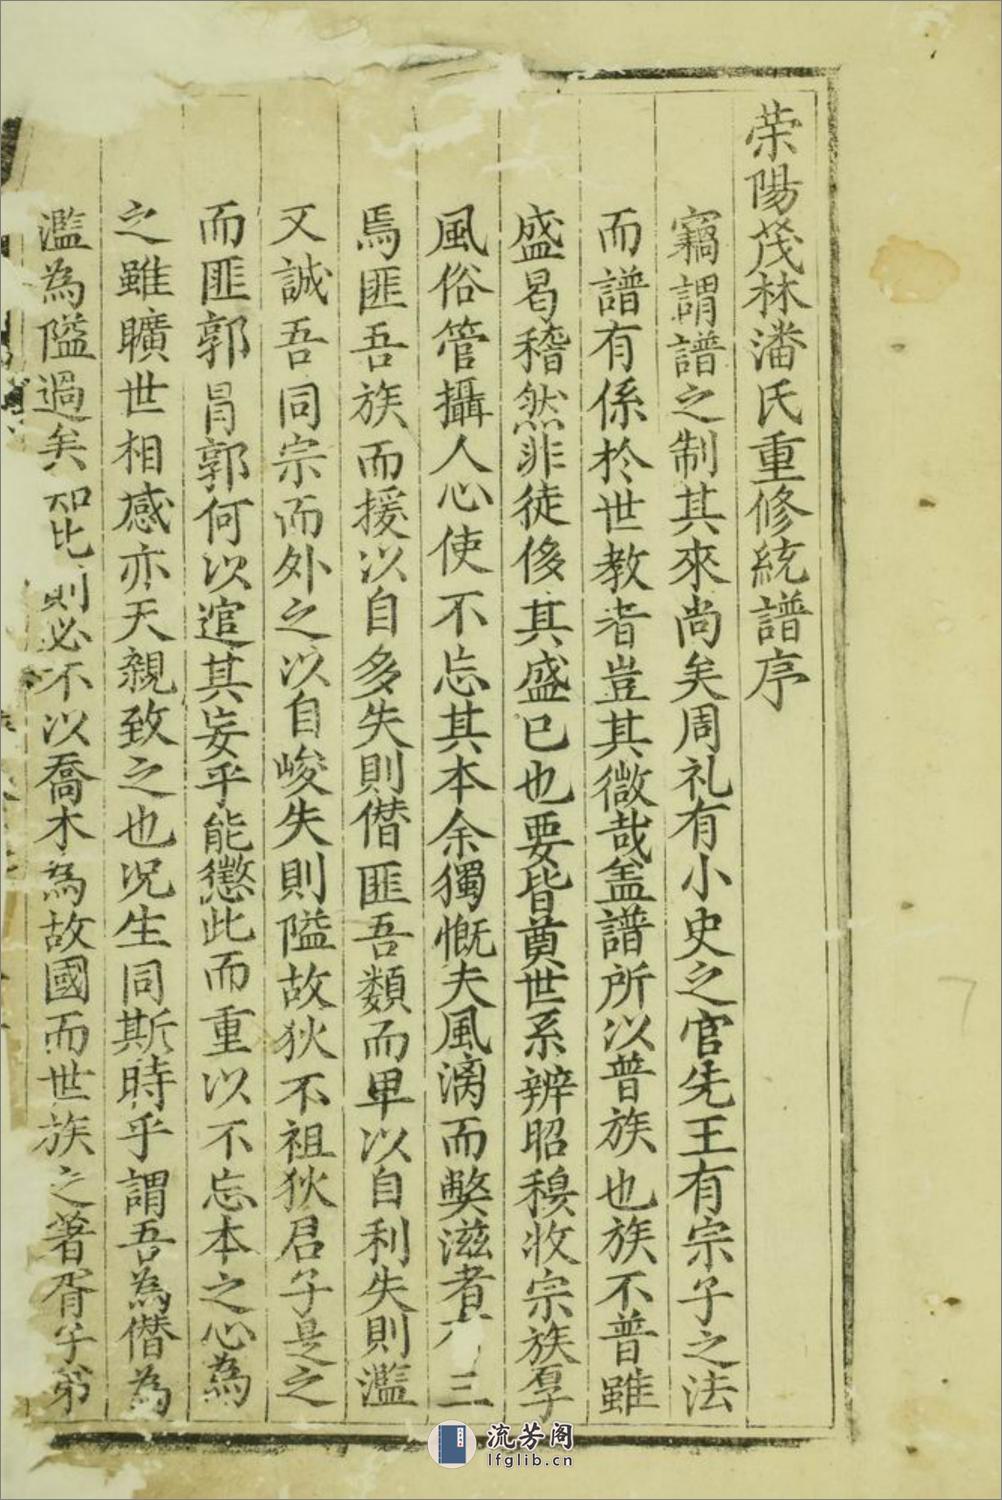 荣陽茂林潘氏重修統譜序
竊謂譜之制其來尚矣周礼有小史之官先王有宗子之法
而譜有係於世教者豈其微哉盖譜所以普族也族不普雖
盛曷稽然非徒侈其盛已也要皆奠世系辨昭穆收宗族厚
風俗管攝人心使不忘其本余獨慨夫風漓而獘滋者三
焉匪吾族而援以自多失則僭匪吾類而畢以自利失則濫
又誠吾同宗而外之以自峻失則隘故狄不祖狄君子是之
而匪郭冐郭何以逭其妄乎能懲此而重以不忘本之心為
之雖曠世相感亦天親致之也况生同斯時乎謂吾為僭為
濫為隘過矣如此則必不以喬木為故國而世族之著胥子弟
流芳阁
lfglib.cn